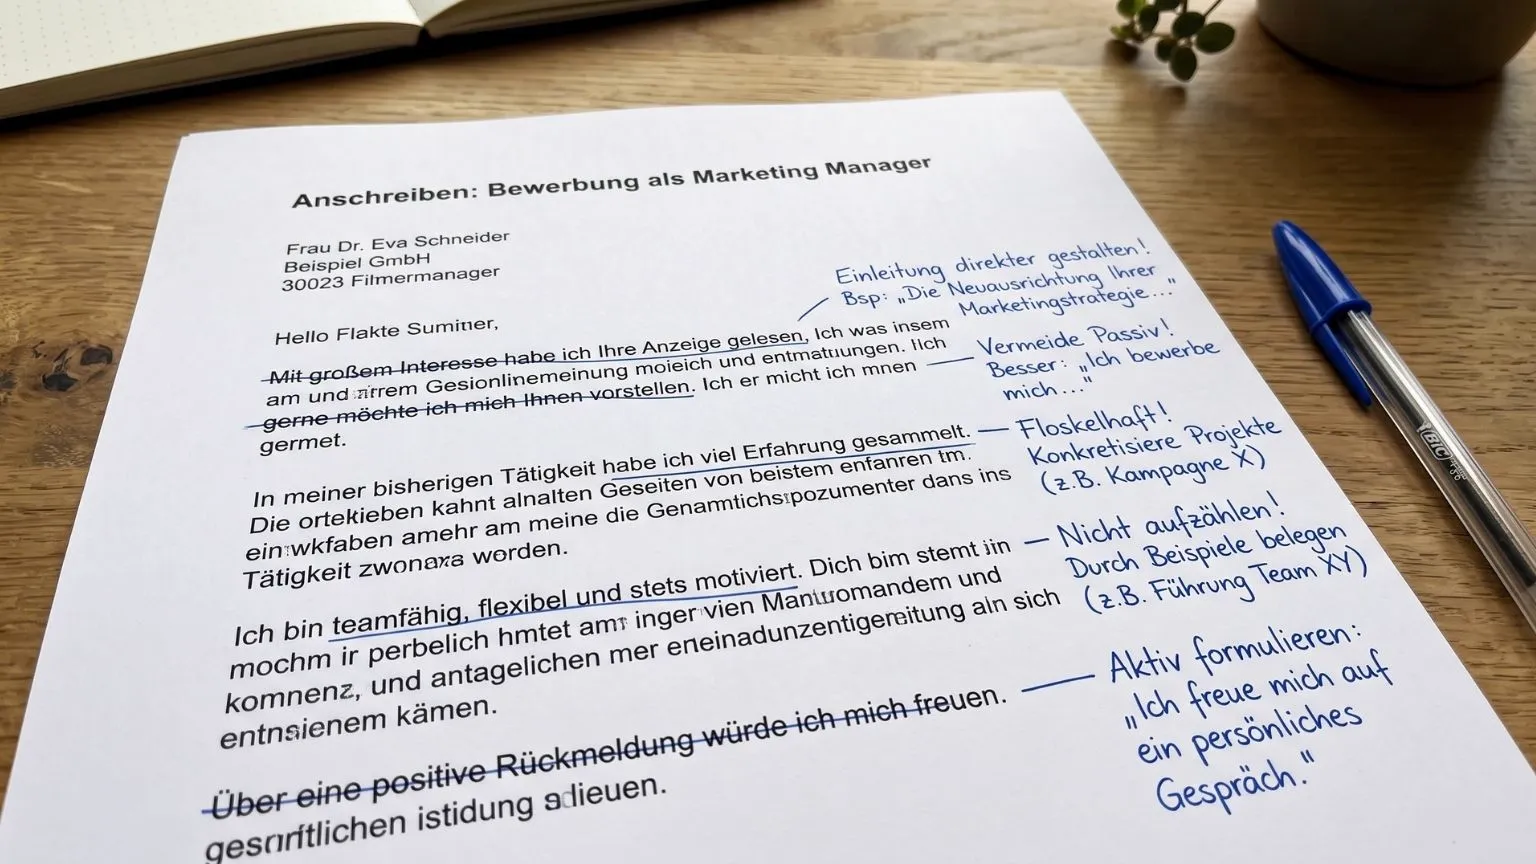 Anschreiben: Bewerbung als Marketing Manager
Frau Dr. Eva Schneider
Beispiel GmbH
30023 Filmermanager
Hello Flakte Sumitter,
Mit großem Interesse habe ich Ihre Anzeige gelesen, Ich was insem
am und Gesionlinemeinung moieich und
gerne möchte ich mich Ihnen vorstellen. Ich er micht ich mnen
germet.
In meiner bisherigen Tätigkeit habe ich viel Erfahrung gesammelt.
Die ortekieben kahnt alnalten Geseiten von beistem enfanren tm.
amehr am meine die dans ins
Tätigkeit worden.
Ich bin teamfähig, flexibel und stets motiviert. Dich bim stemt
mochm ir perbelich hmtet inger vien und
und antagelichen mer aln sich
kämen.
Über eine positive Rückmeldung würde ich mich freuen.
istidung
Einleitung direkter gestalten!
Bsp: „Die Neuausrichtung Ihrer
Marketingstrategie..."
Vermeide Passiv!
Besser: „Ich bewerbe
mich..."
Floskelhaft!
Konkretisiere Projekte
(z.B. Kampagne X)
Nicht aufzählen!
Durch Beispiele belegen
(z.B. Führung Team XY)
Aktiv formulieren:
„Ich freue mich auf
ein persönliches
Gespräch."
BIC